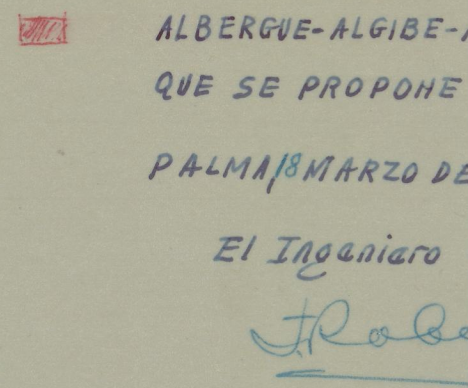 ALBERGUE-ALGIBE-
QUE SE PROPONE
PALMA, 18 MARZO DE
El Ingeniero